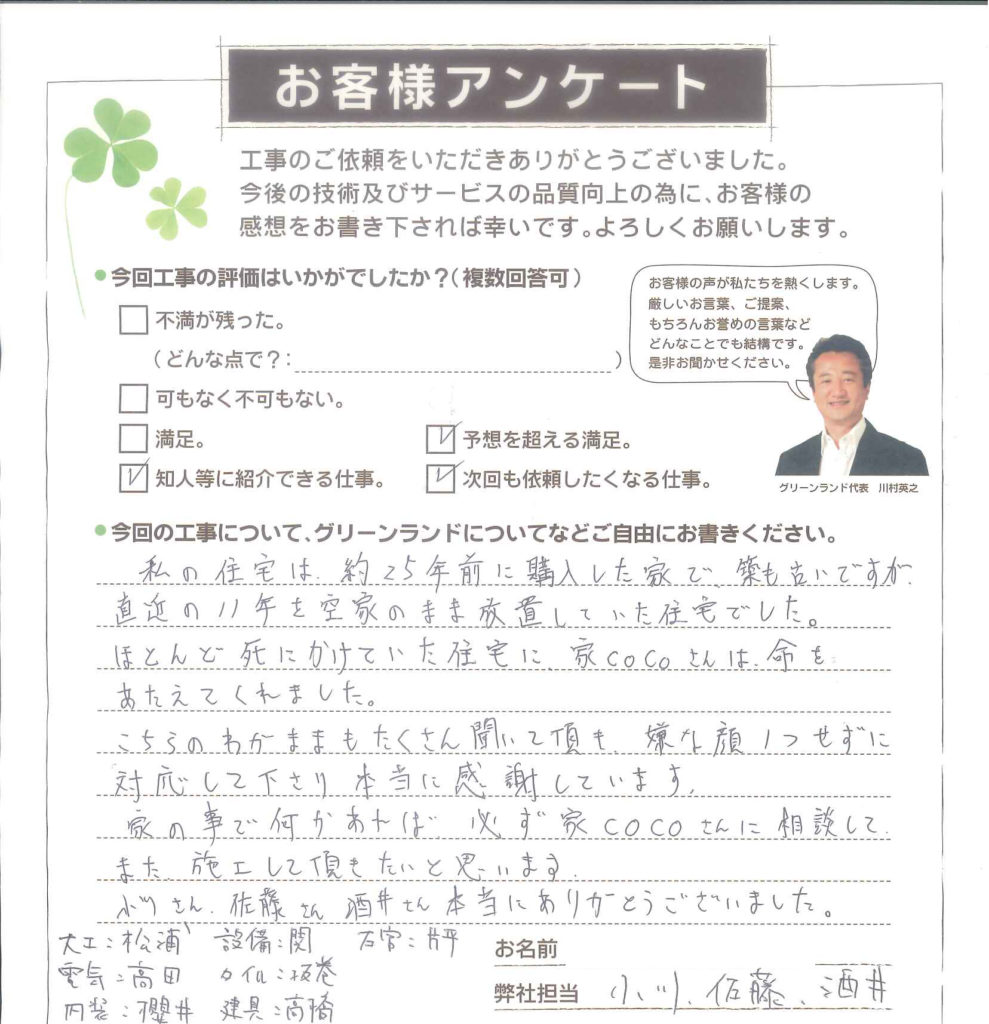 お客様アンケート
工事のご依頼をいただきありがとうございました。
今後の技術及びサービスの品質向上の為に、お客様の
感想をお書き下されば幸いです。よろしくお願いします。
今回工事の評価はいかがでしたか?(複数回答可)
不満が残った。
(どんな点で?: )
可もなく不可もない。
満足。
予想を超える満足。
知人等に紹介できる仕事。
次回も依頼したくなる仕事。
お客様の声が私たちを熱くします。
厳しいお言葉、ご提案、
もちろんお誉めの言葉など
どんなことでも結構です。
是非お聞かせください。
グリーンランド代表 川村英之
今回の工事について、グリーンランドについてなどご自由にお書きください。
私の住宅は、約25年前に購入した家で、築も古いですが、
直近の11年を空家のまま放置していた住宅でした。
ほとんど死にかけていた住宅に、家COCOさんは、命を
あたえてくれました。
こちらのわがままもたくさん聞いて頂き、嫌な顔1つせずに
対応して下さり本当に感謝しています。
家の事で何かあれば必ず家COCOさんに相談して、
また、施工して頂きたいと思います。
小川さん、佐藤さん、酒井さん本当にありがとうございました。
大工:松浦 設備:関 石官:片平
電気:高田 タイル:坂巻
内装:櫻井 建具:高橋
お名前
弊社担当 小川、佐藤、酒井